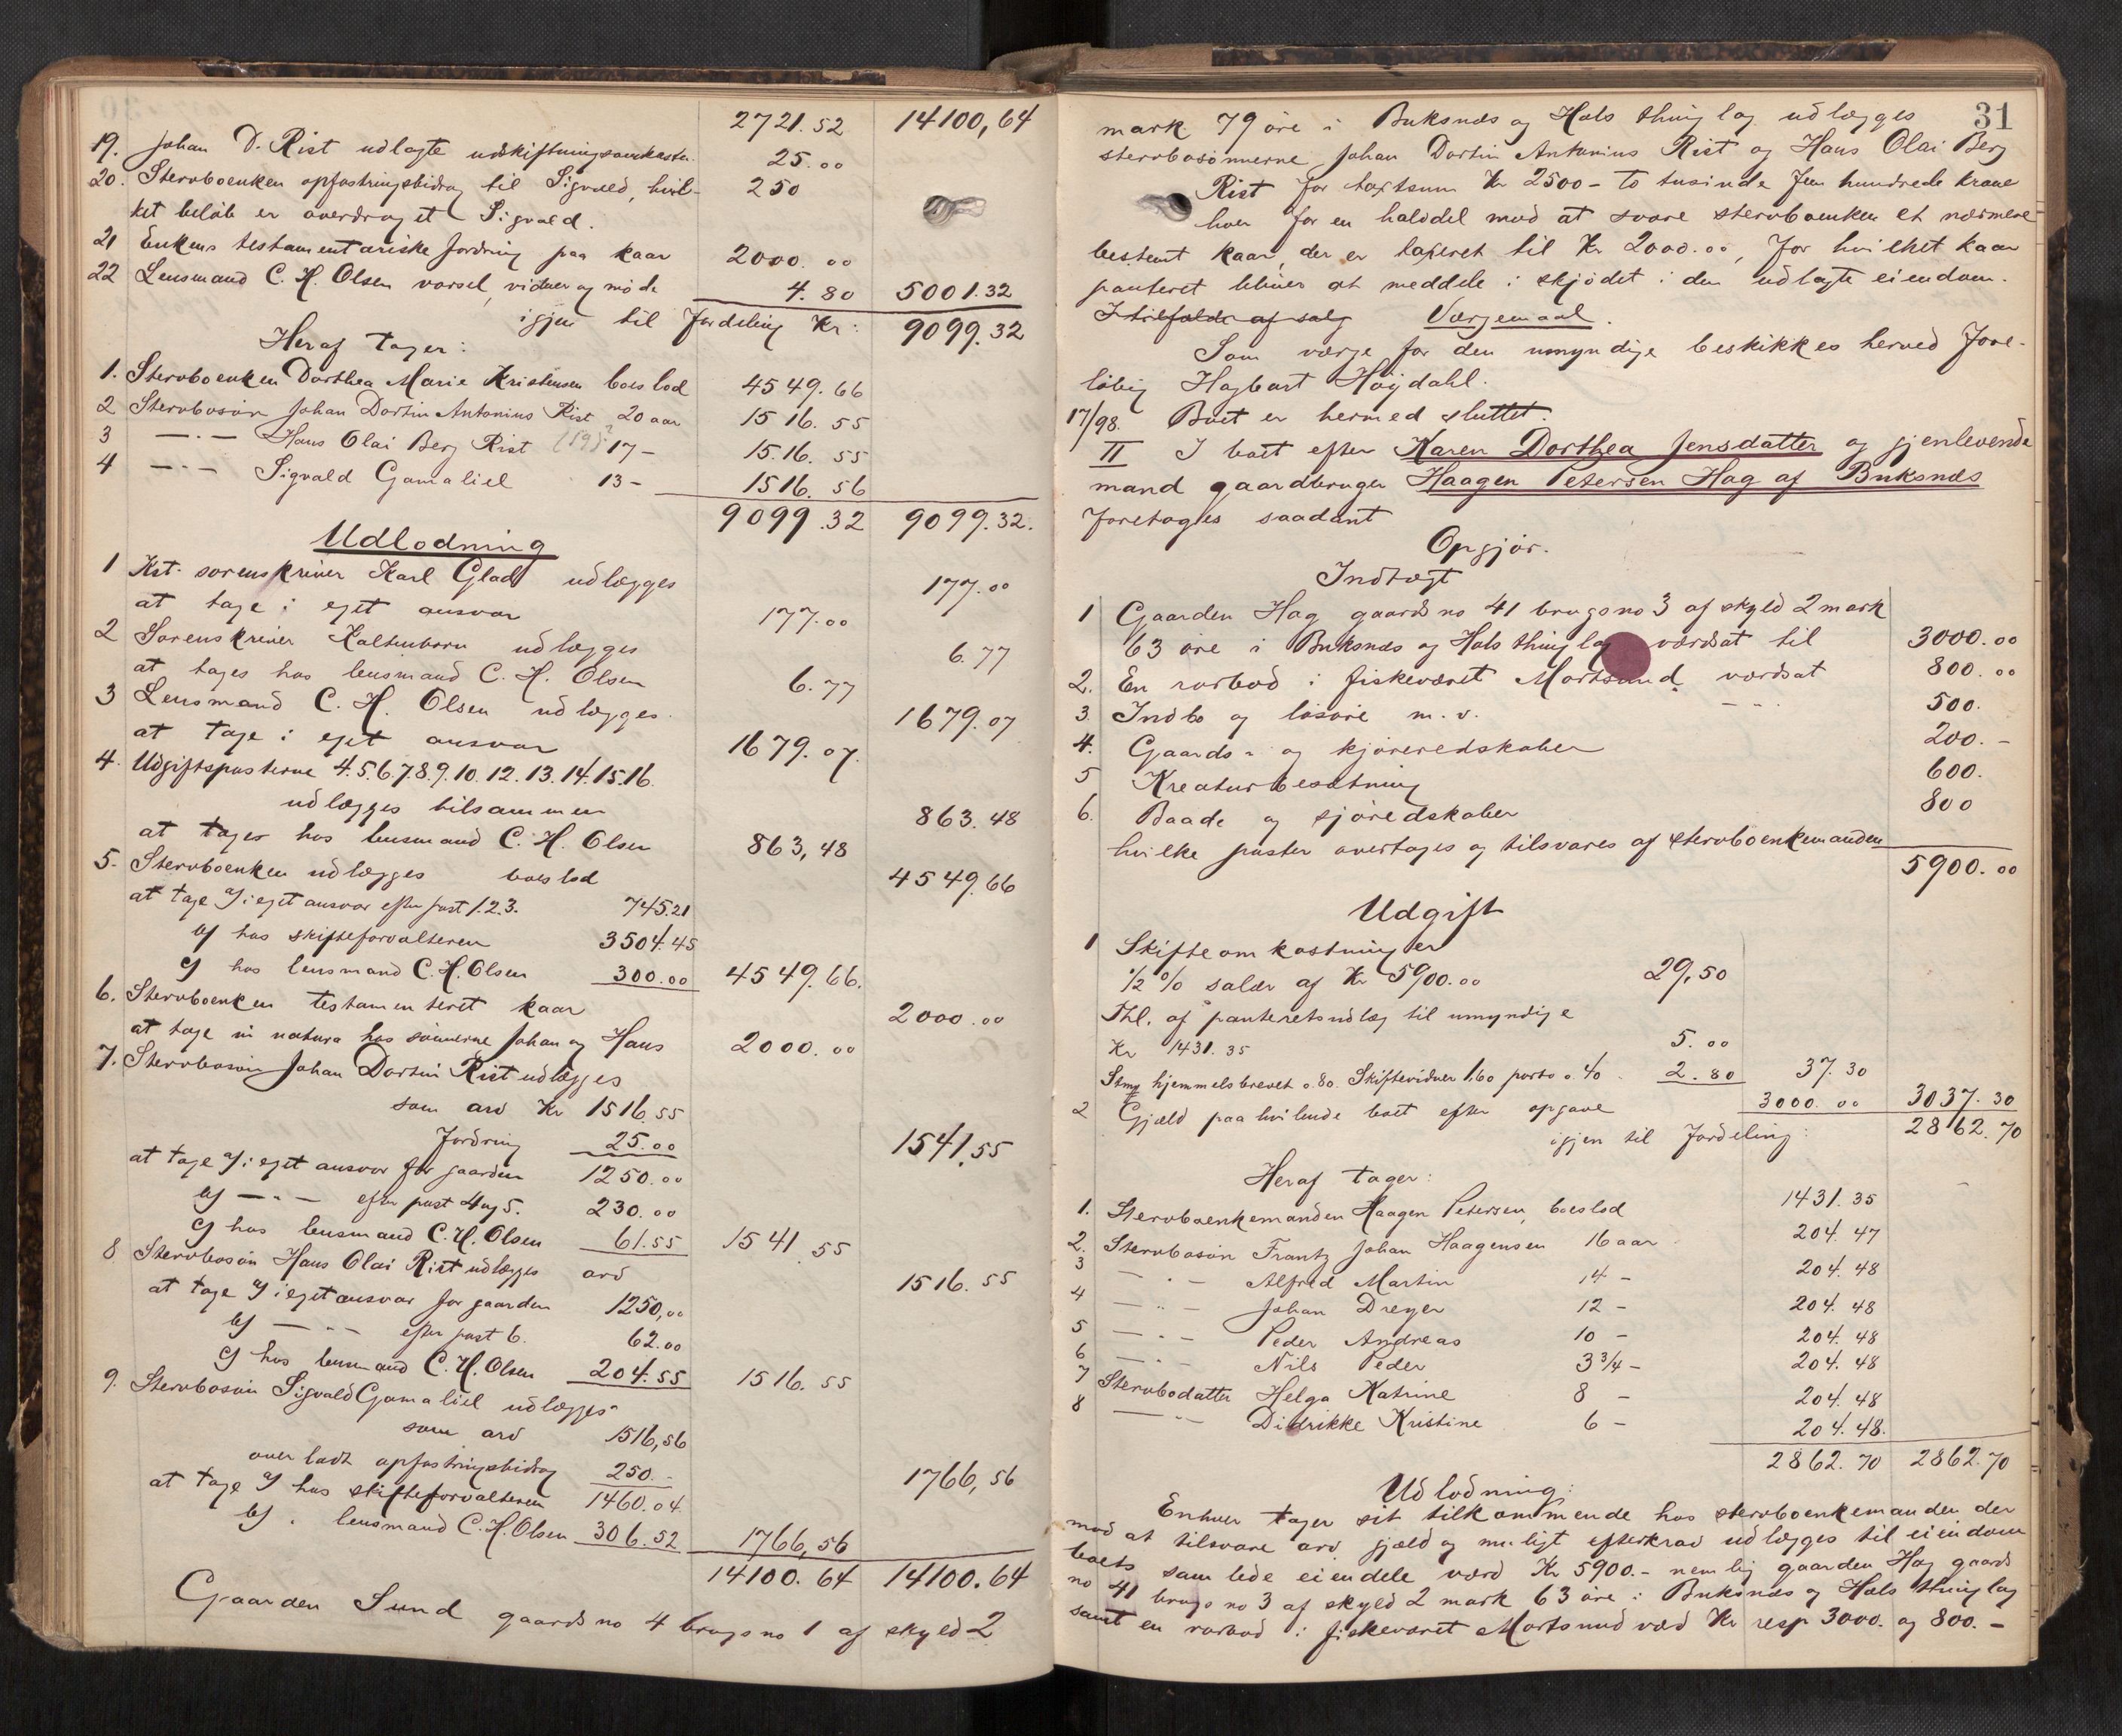 2721.52 14100,64
19. Johan D. Rist udlagte udskiftningsomkostn. 25.00
20. Stervboenken opfostringsbidrag til Sigvald, hvil- 250
ket beløb er overdraget Sigvald.
21 Enkens testamentariske fordring paa kaar 2000.00
22 Lensmand C. H. Olsen varsel, vidner og møde 4.80 5001.32
igjen til fordeling Kr: 9099.32
Heraf tager:
1. Stervboenken Dorthea Marie Kristensen boeslod 4549.66
2 Stervbosøn Johan Dortin Antonius Rist 20 aar 1516.55
3 —·— Hans Olai Berg Rist 17 — 1516.55
4 —·— Sigvald Gamaliel 13 — 1516.56
9099.32 9099.32.
Udlodning
1 Kst. sorenskriver Karl Glad udlægges 177.00
at tage i eget ansvar 177.00
2 Sorenskriver Kaltenborn udlægges 6.77
at tages hos lensmand C. H. Olsen 6.77
3 Lensmand C. H. Olsen udlægges 1679.07
at tage i eget ansvar 1679.07.
4. Udgiftsposterne 4.5.6.7.8.9.10.12.13.14.15.16.
udlægges tilsammen 863.48
at tages hos lensmand C. H. Olsen 863,48
5. Stervboenken udlægges boeslod 4549.66
at tage a) i eget ansvar efter post 1.2.3. 745.21
b) hos skifteforvalteren 3504.45
c) hos lensmand C. H. Olsen 300.00 4549.66.
6. Stervboenken testamenteret kaar 2000.00
at tage in natura hos sønnerne Johan og Hans 2000.00
7. Stervbosøn Johan Dortin Rist udlægges
som arv Kr 1516.55
Fordring 25.00 1541.55
at tage a) i eget ansvar for gaarden 1250.00
b) —·— efter post 4 og 5. 230.00
c) hos lensmand C. H. Olsen 61.55 1541.55
8 Stervbosøn Hans Olai Rist udlægges arv 1516.55
at tage a) i eget ansvar for gaarden 1250,00
b) —·— efter post 6. 62.00
c) hos lensmand C. H. Olsen 204.55 1516.55
9. Stervbosøn Sigvald Gamaliel udlægges
som arv 1516,56
overladt opfostringsbidrag 250.- 1766,56
at tage a) hos skifteforvalteren 1460.04
b) . lensmand C. H. Olsen 306.52 1766,56
14100.64 14100.64
Gaarden Sund gaards no 4 brugs no 1 af skyld 2
31
mark 79 øre i Buksnæs og Hols thinglag udlægges
stervbosønnerne Johan Dortin Antonius Rist og Hans Olai Berg
Rist for taxtsum Kr 2500 - to tusinde fem hundrede krone
hver for en halvdel mod at svare stervboenken et nærmere
bestemt kaar, der er taxeret til Kr 2000.00, for hvilket kaar
panteret bliver at meddele i skjødet i den udlagte eiendom.
I tilfælde af salg Værgemaal.
Som værge for den umyndige beskikkes herved fore-
løbig Hagbart Høydahl.
17/98. Boet er hermed sluttet.
II I boet efter Karen Dorthea Jensdatter og gjenlevende
mand gaardbruger Haagen Petersen Hag af Buksnæs
foretoges saadant
Opgjør.
Indtægt
1 Gaarden Hag gaards no 41 brugs no 3 af skyld 2 mark
63 øre i Buksnæs og Hols thinglag værdsat til 3000.00
2. En rorbod i fiskeværet Mortsund værdsat 800.00
3. Indbo og løsøre m. v. —·— 500.
4. Gaards- og kjøreredskaber 200.-
5 Kreaturbesætning 600.
6. Baade og sjøredskaber 800
hvilke poster overtages og tilsvares af stervboenkemanden
5900.00
Udgift
1 Skifteomkostninger
1/2 % salær af Kr 5900.00 29,50
Thl. af panteretsudlæg til umyndige
Kr 1431.35 5.00
Stmp hjemmelsbrevet 0.80. Skiftevidner 1,60 porto 0.40 2.80 37.30
2 Gjæld paahvilende boet efter opgave 3000.00 3037.30
igjen til fordeling: 2862.70
Heraf tager:
1. Stervboenkemanden Haagen Petersen, boeslod 1431.35
2. Stervbosøn Frantz Johan Haagensen 16 aar 204.47
3 —·— Alfred Martin 14 - 204.48
4 —·— Johan Dreyer 12 - 204.48
5 —·— Peder Andreas 10 - 204.48
6 —·— Nils Peder 3 3/4 - 204.48
7 Stervbodatter Helga Katrine 8 - 204.48
8 —·— Didrikke Kristine 6 - 204.48.
2862.70 2862.70
Udlodning:
Enhver tager sit tilkommende hos stervboenkemanden der
mod at tilsvare arv, gjæld og muligt efterkrav udlægges til eiendom
boets samlede eiendele værd Kr 5900.- nemlig gaarden Hag gaards
no 41 brugs no 3 af skyld 2 mark 63 øre i Buksnæs og Hols thinglag
samt en rorbod i fiskeværet Mortsund værd Kr resp 3000. og 800.-